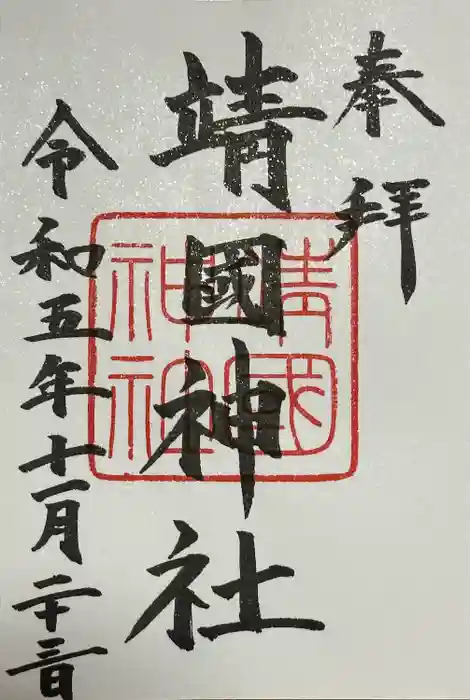 奉拝
靖國神社
靖國
神社
令和五年十一月二十三日